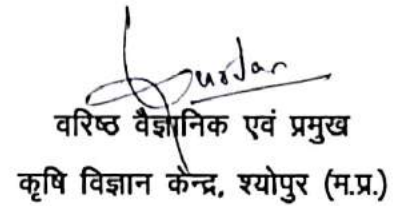 वरिष्ठ वैज्ञानिक एवं प्रमुख
कृषि विज्ञान केन्द्र, श्योपुर (म.प्र.)